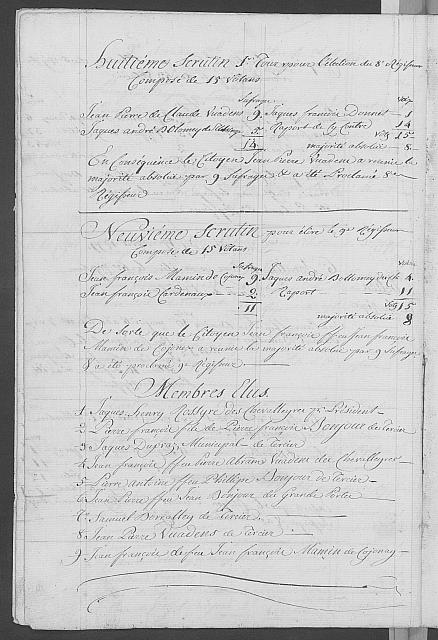 Huitiéme Scrutin 1er Tour pour l'élection du 8e Régisseur
Composé de 15 Votans
Sufrages Votes
Jean Pierre de Claude Vuadens 9 Jaques francois Donnet 1
Jaques andré Bolomey 5 Raport de cy Contre 14
14 Votes 15
majorité absolue 8
En Conséquence le Citoyen Jean Pierre Vuadens a reunie la
majorité absolue par 9 Sufrages & a été Proclamé 8e
Régisseur
Neuxiéme Scrutin pour élire le 9e Régisseur
Composé de 15 Votans
Sufrages Votans
Jean françois Mamin de Cojonay 9 Jaques andré Bollomey 4
Jean françois Cardenaux 2 Raport 11
11 Votes 15
majorité absolue 8
De Sorte que le Citoyen Jean françois ffeu Jean françois
Mamin de Cojonay a reunie la majorité absolue par 9 Sufrages
& a été proclamé 9e Régisseur
Membres Elus.
1 Jaques Henry Rossyre des Chevalleyres Président
2 Pierre françois fils de Pierre françois Bonjour de Tercier
3 Jaques Dupraz Municipal de Tercier
4 Jean françois ffeu Pierre Abram Vuadens des Chevalleyres
5 Pierre Antoine ffeu Philippe Bonjour de Tercier
6 Jean Pierre ffeu Jean Bonjour du Grande Porte
7 Samuel Borralley de Tercier.
8 Jean Pierre Vuadens de Tercier
9 Jean françois de feu Jean françois Mamin de Cojonay